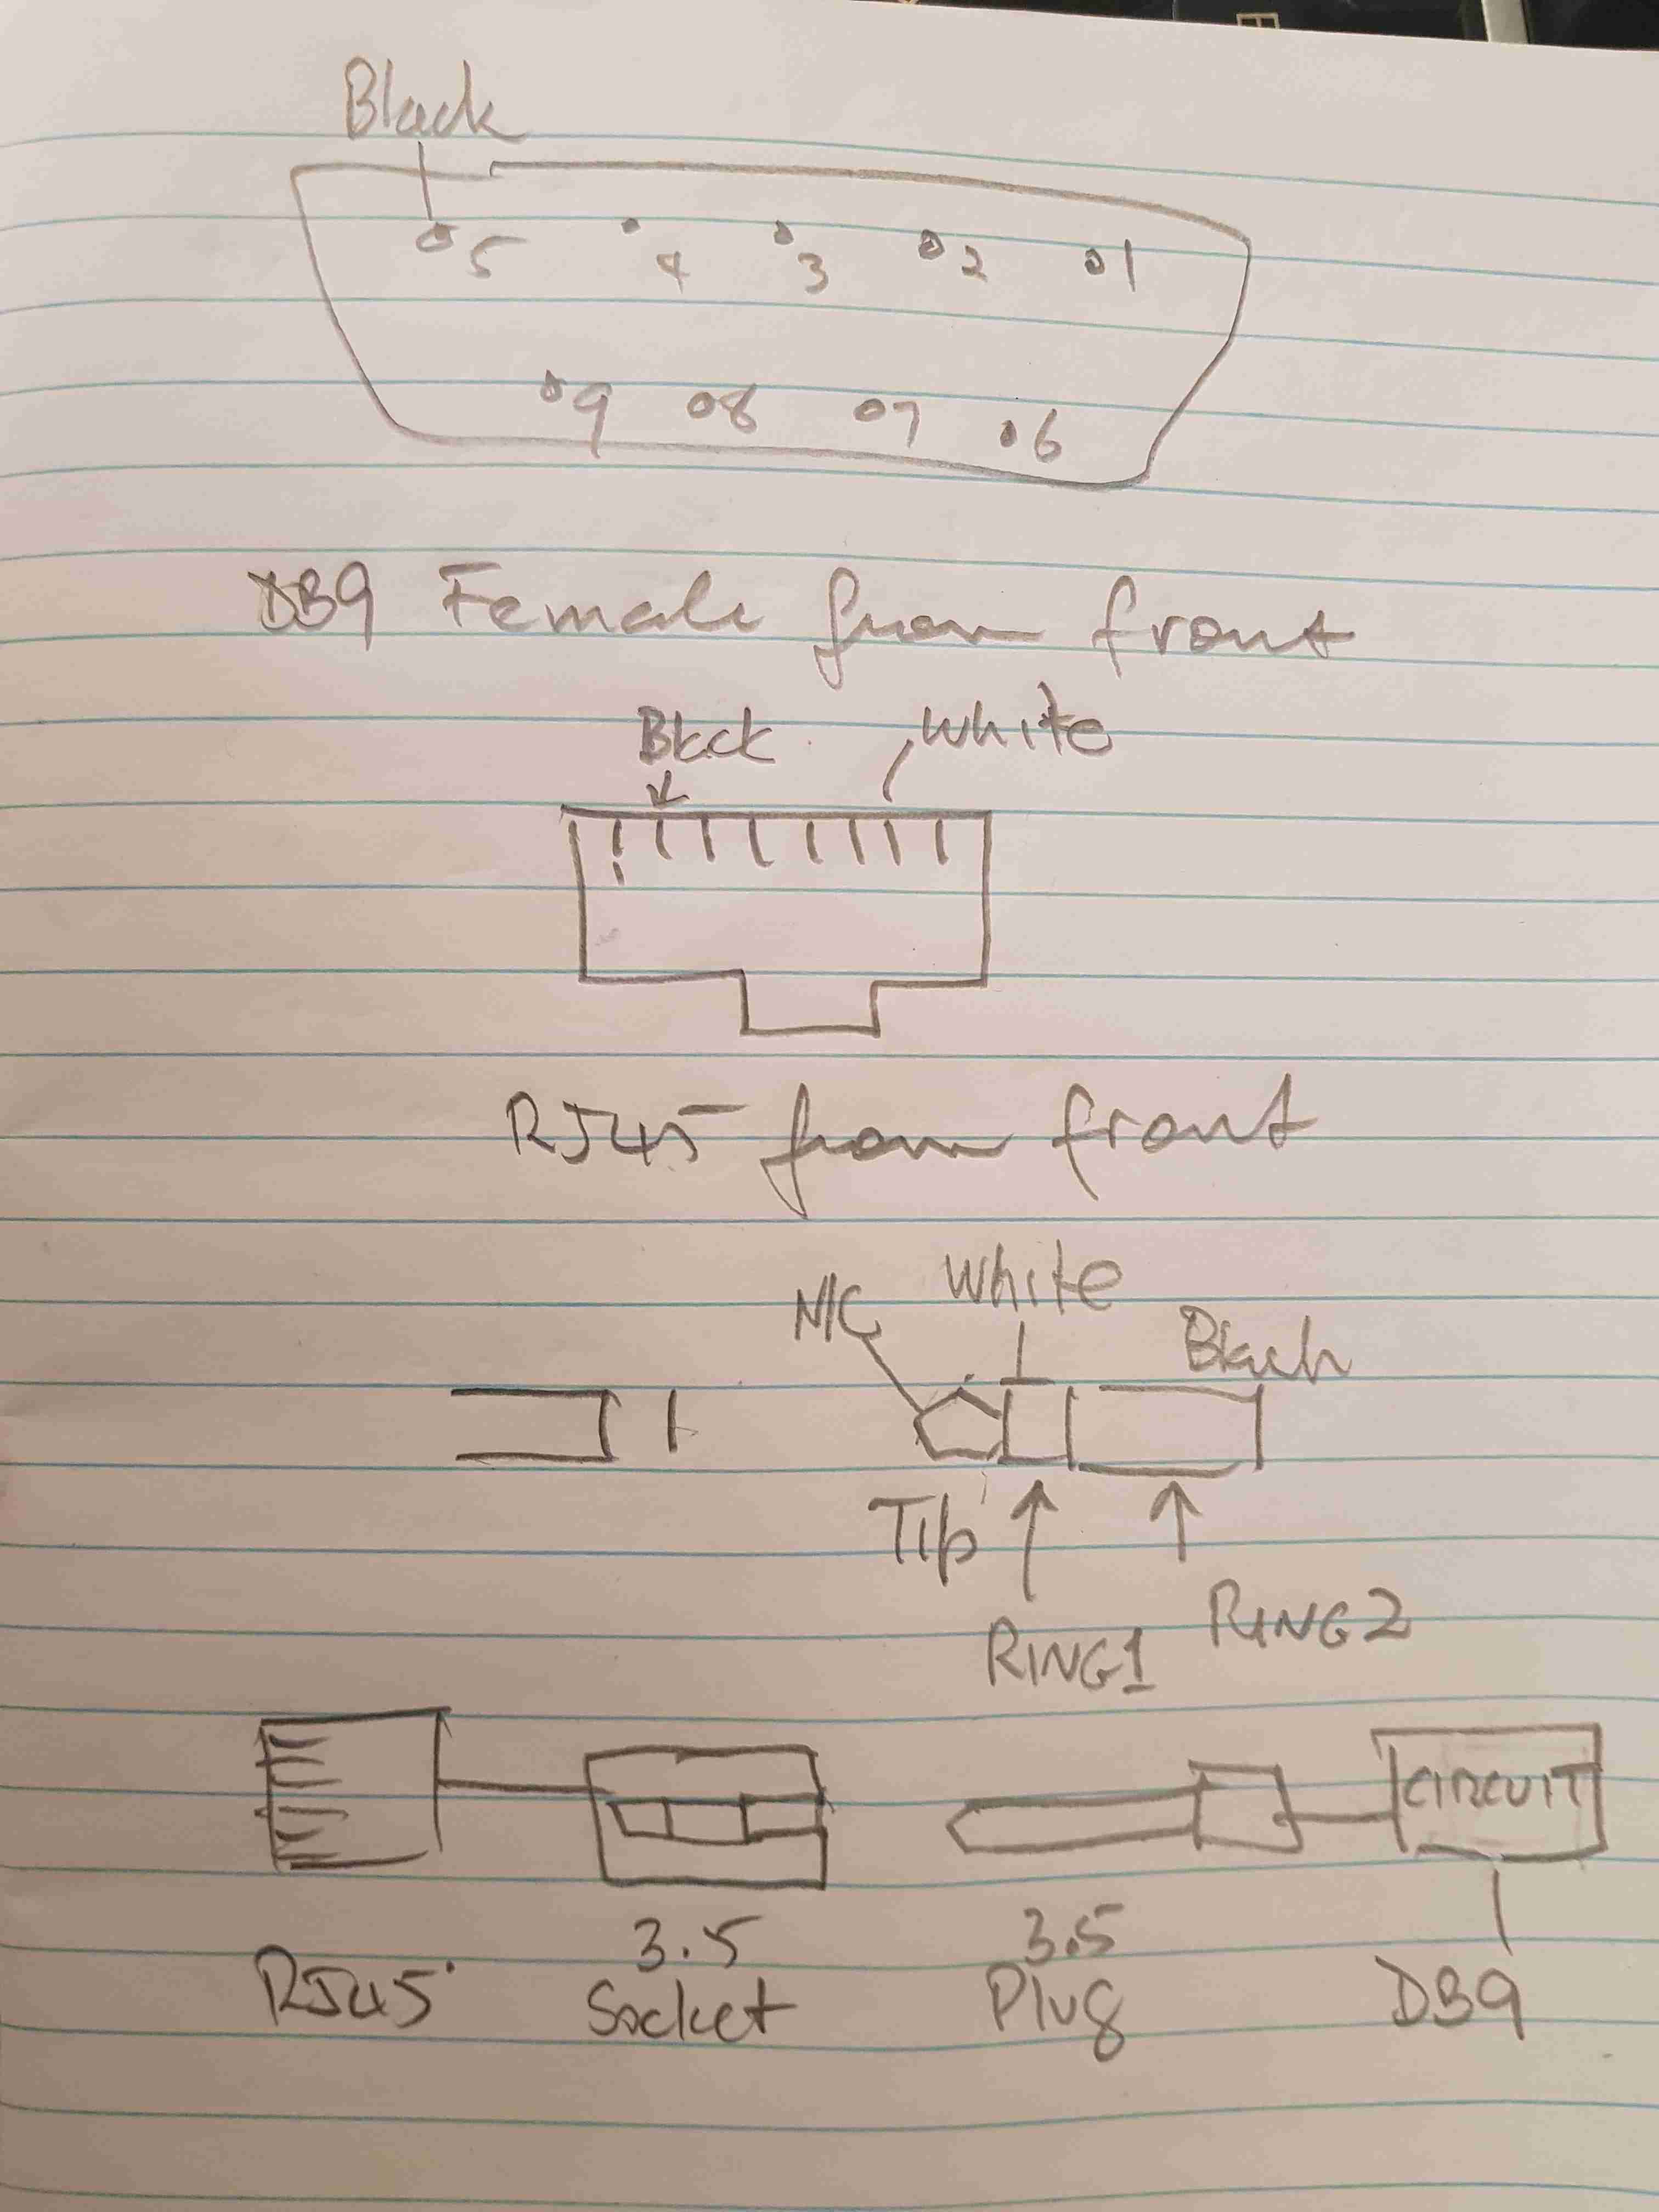 Black
5 4 3 2 1
9 8 7 6
DB9 Female from front
Black White
RJ45 from front
N/C White Black
Tip
RING1 RING2
CIRCUIT
RJ45 3.5 Socket 3.5 Plug DB9